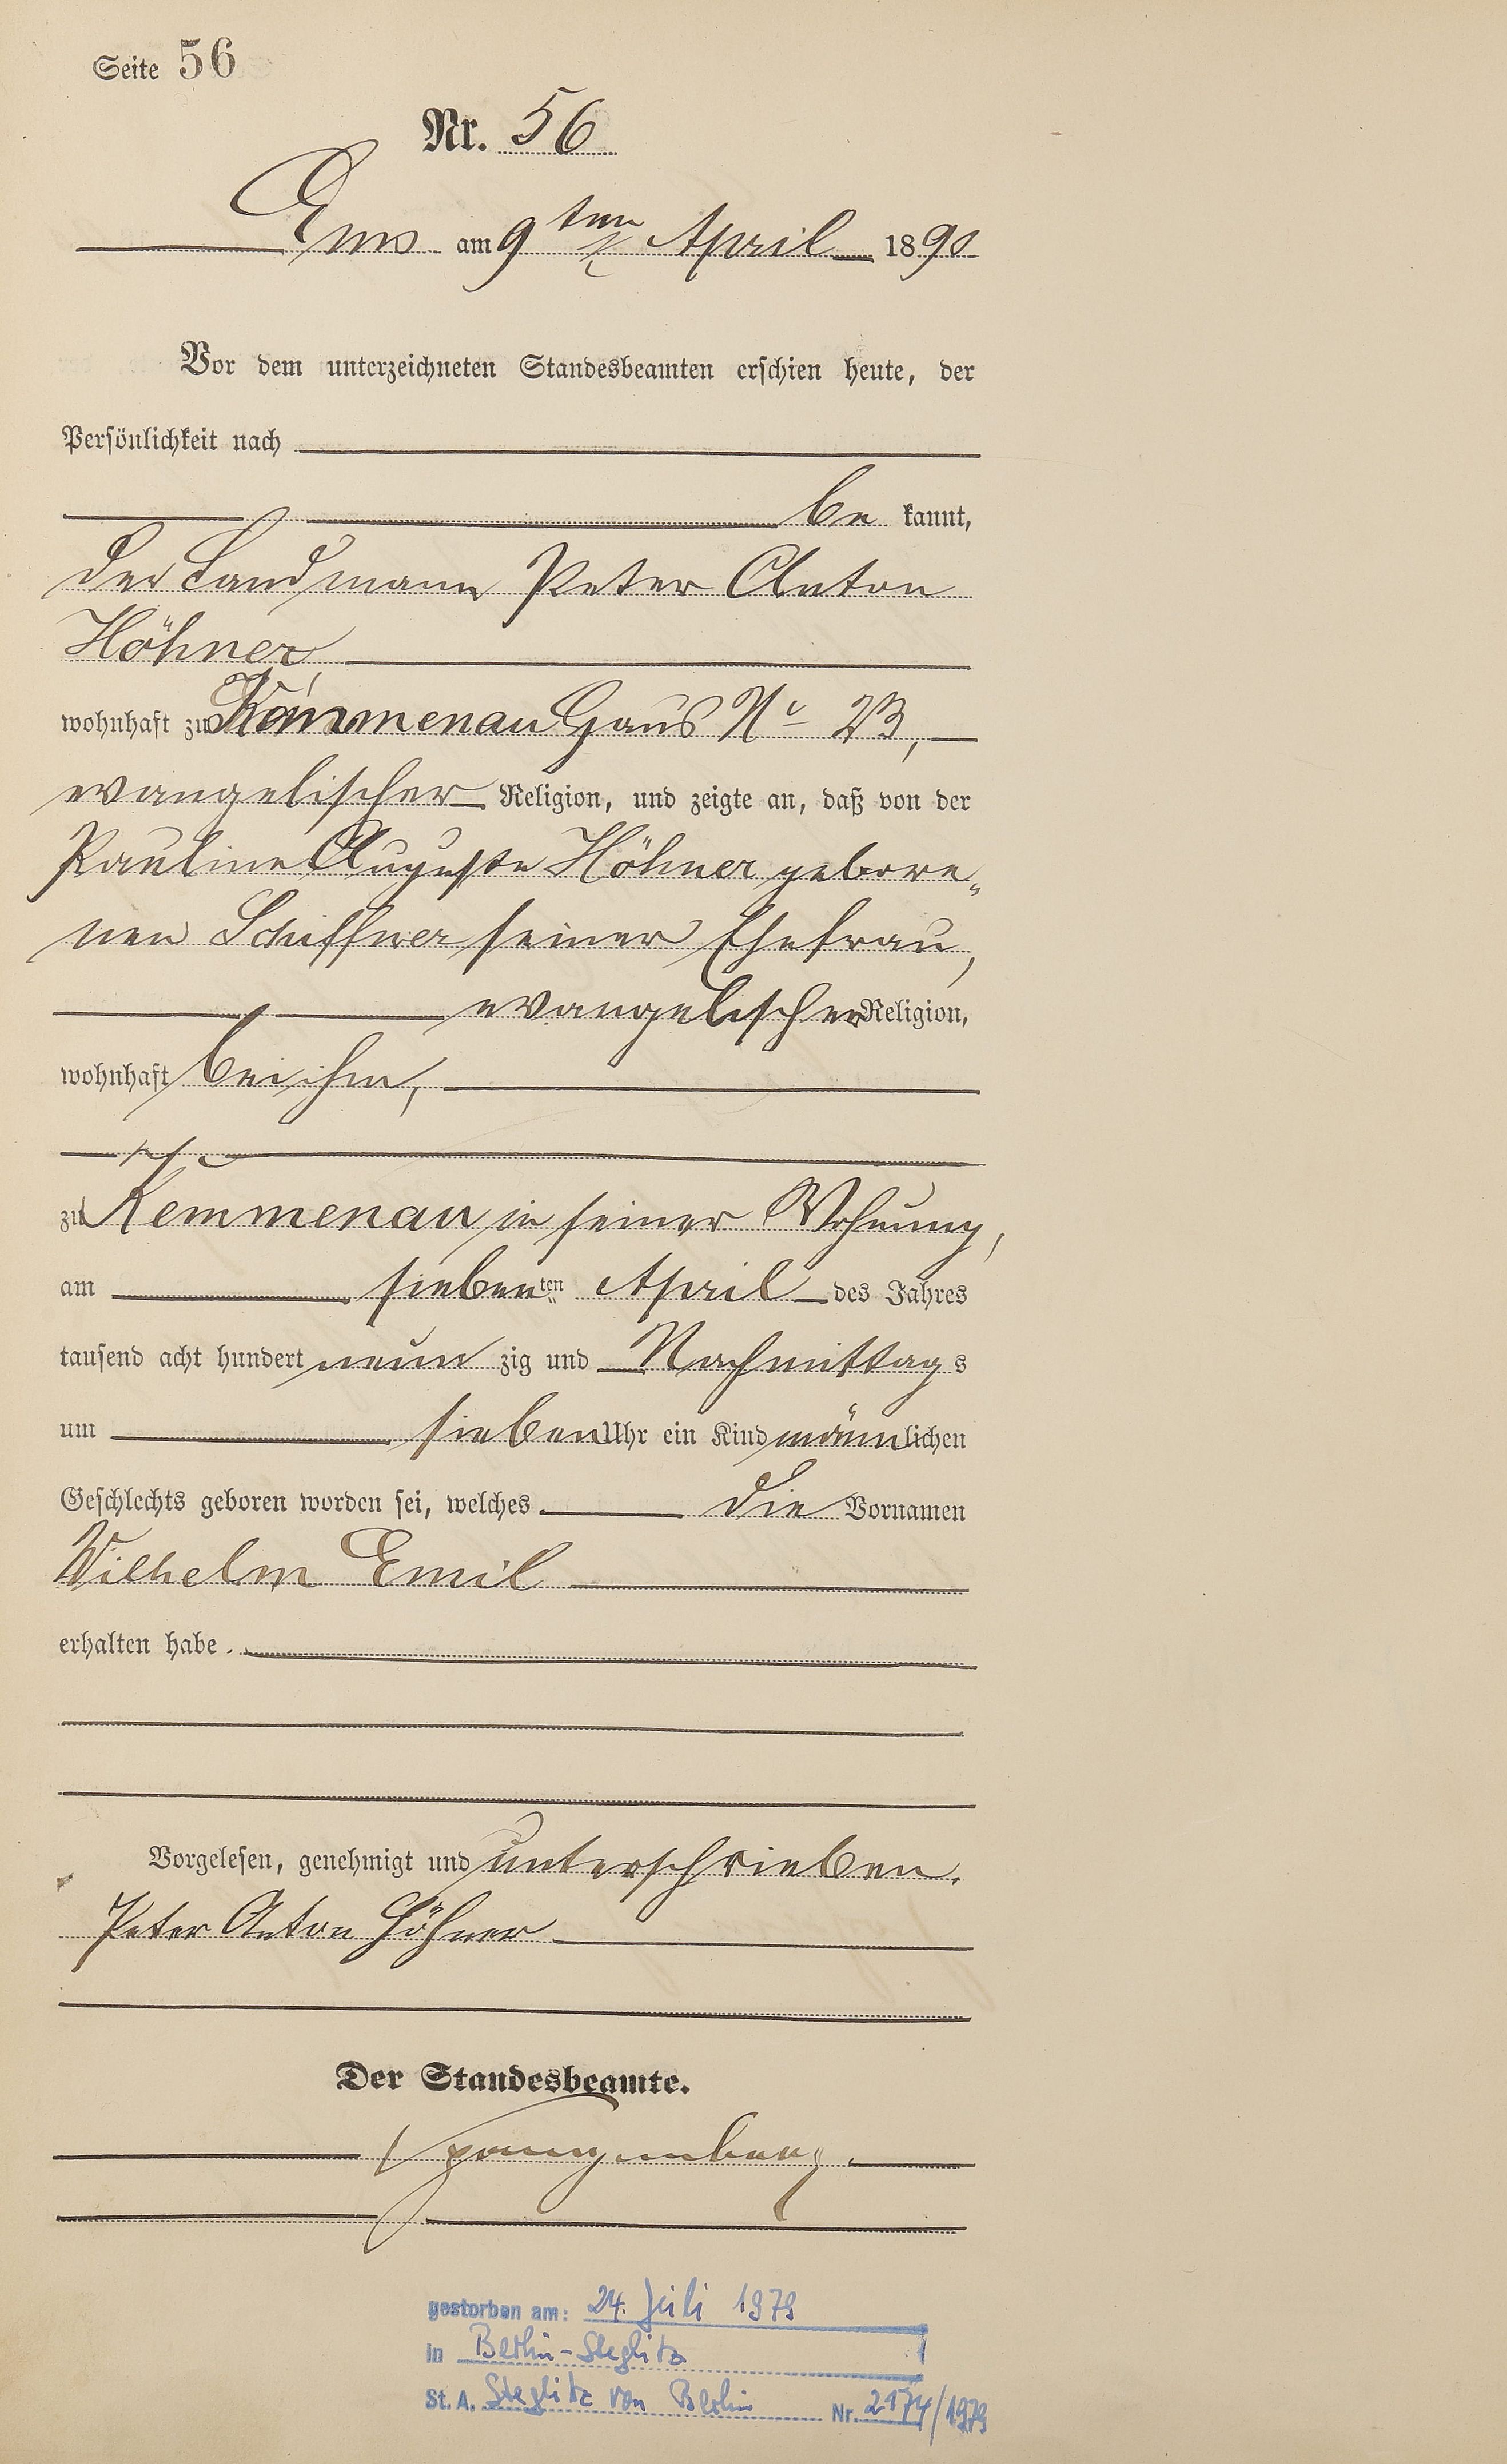 Seite 56
Nr. 56
Ems am 9ten April 1890
Vor dem unterzeichneten Standesbeamten erschien heute, der
Persönlichkeit nach
be kannt,
der Landmann Peter Anton
Höhner,
wohnhaft zu Kemmenau Haus No 23,
evangelischer Religion, und zeigte an, daß von der
Pauline Auguste Höhner gebore-
nen Schiffner seiner Ehefrau,
evangelischer Religion,
wohnhaft bei ihm,
zu Kemmenau in seiner Wohnung,
am siebenten April des Jahres
tausend acht hundert neun zig und Nachmittags
um sieben Uhr ein Kind männlichen
Geschlechts geboren worden sei, welches die Vornamen
Wilhelm Emil
erhalten habe.
Vorgelesen, genehmigt und unterschrieben.
Peter Anton Höhner
Der Standesbeamte.
Spangenberg.
gestorben am: 24. Juli 1979
in Berlin-Steglitz
St. A. Steglitz von Berlin Nr. 2174/1979